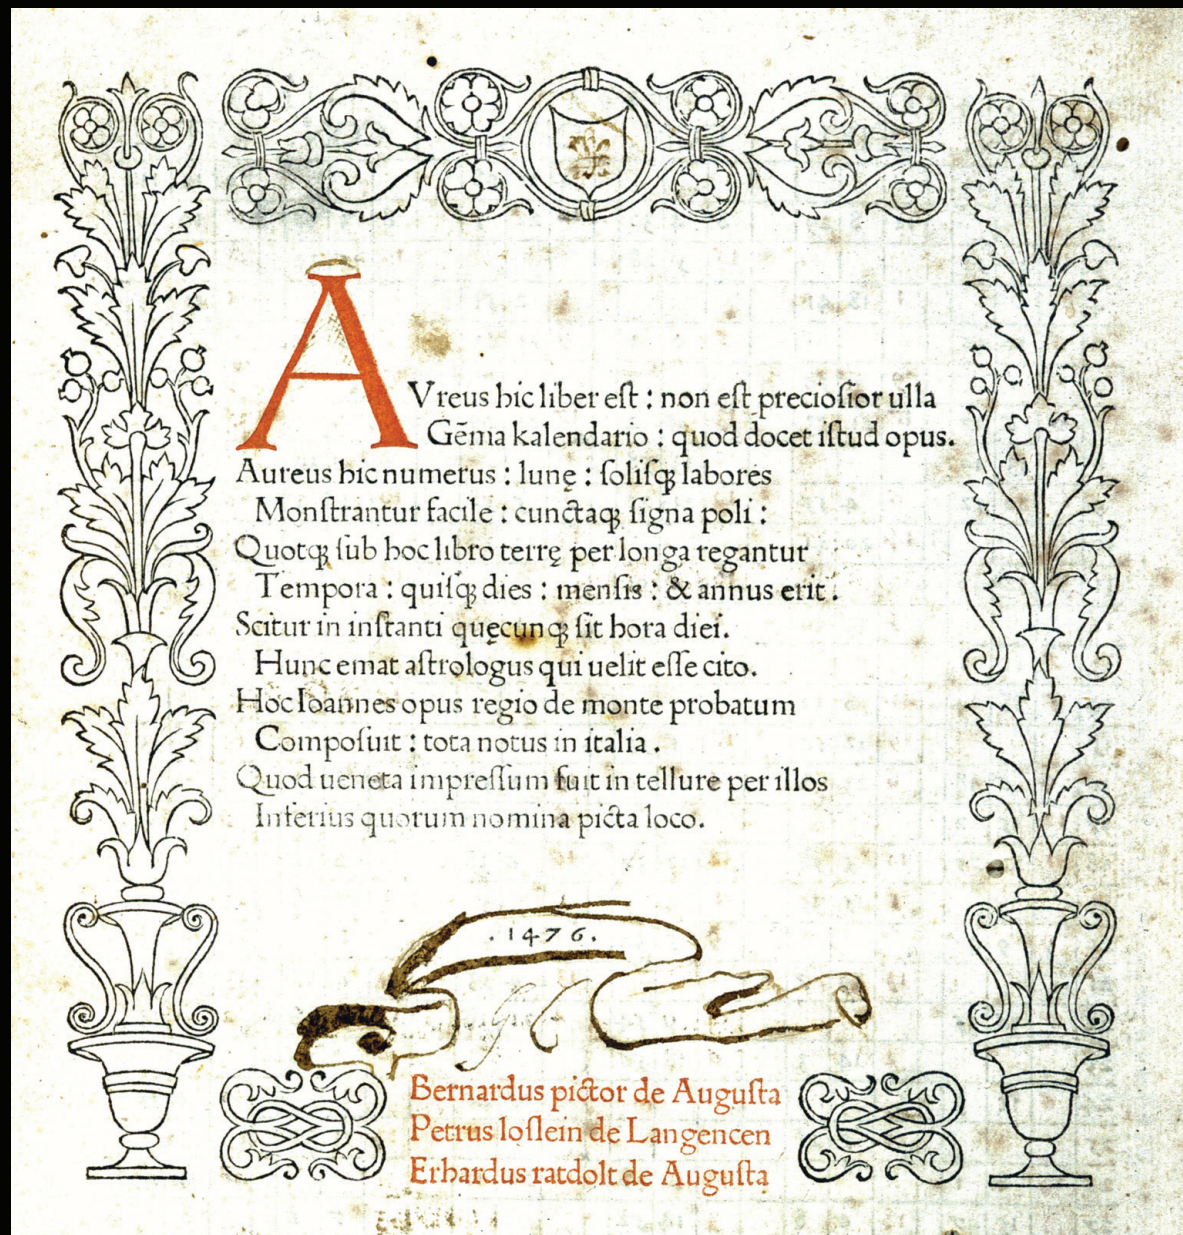 AVreus hic liber eſt : non eſt precioſior ulla
Gēma kalendario : quod docet iſtud opus.
Aureus hic numerus : lunę : ſoliſqꝫ labores
Monſtrantur facile : cunctaqꝫ ſigna poli :
Quotqꝫ ſub hoc libro terrę per longa regantur
Tempora : quiſqꝫ dies : menſis : & annus erit :
Scitur in inſtanti quęcunqꝫ ſit hora diei.
Hunc emat aſtrologus qui uelit eſſe cito.
Hoc Ioannes opus regio de monte probatum
Compoſuit : tota notus in italia .
Quod ueneta impreſſum fuit in tellure per illos
Inferius quorum nomina picta loco.
. 1476 .
Bernardus pictor de Auguſta
Petrus loſlein de Langencen
Erhardus ratdolt de Auguſta